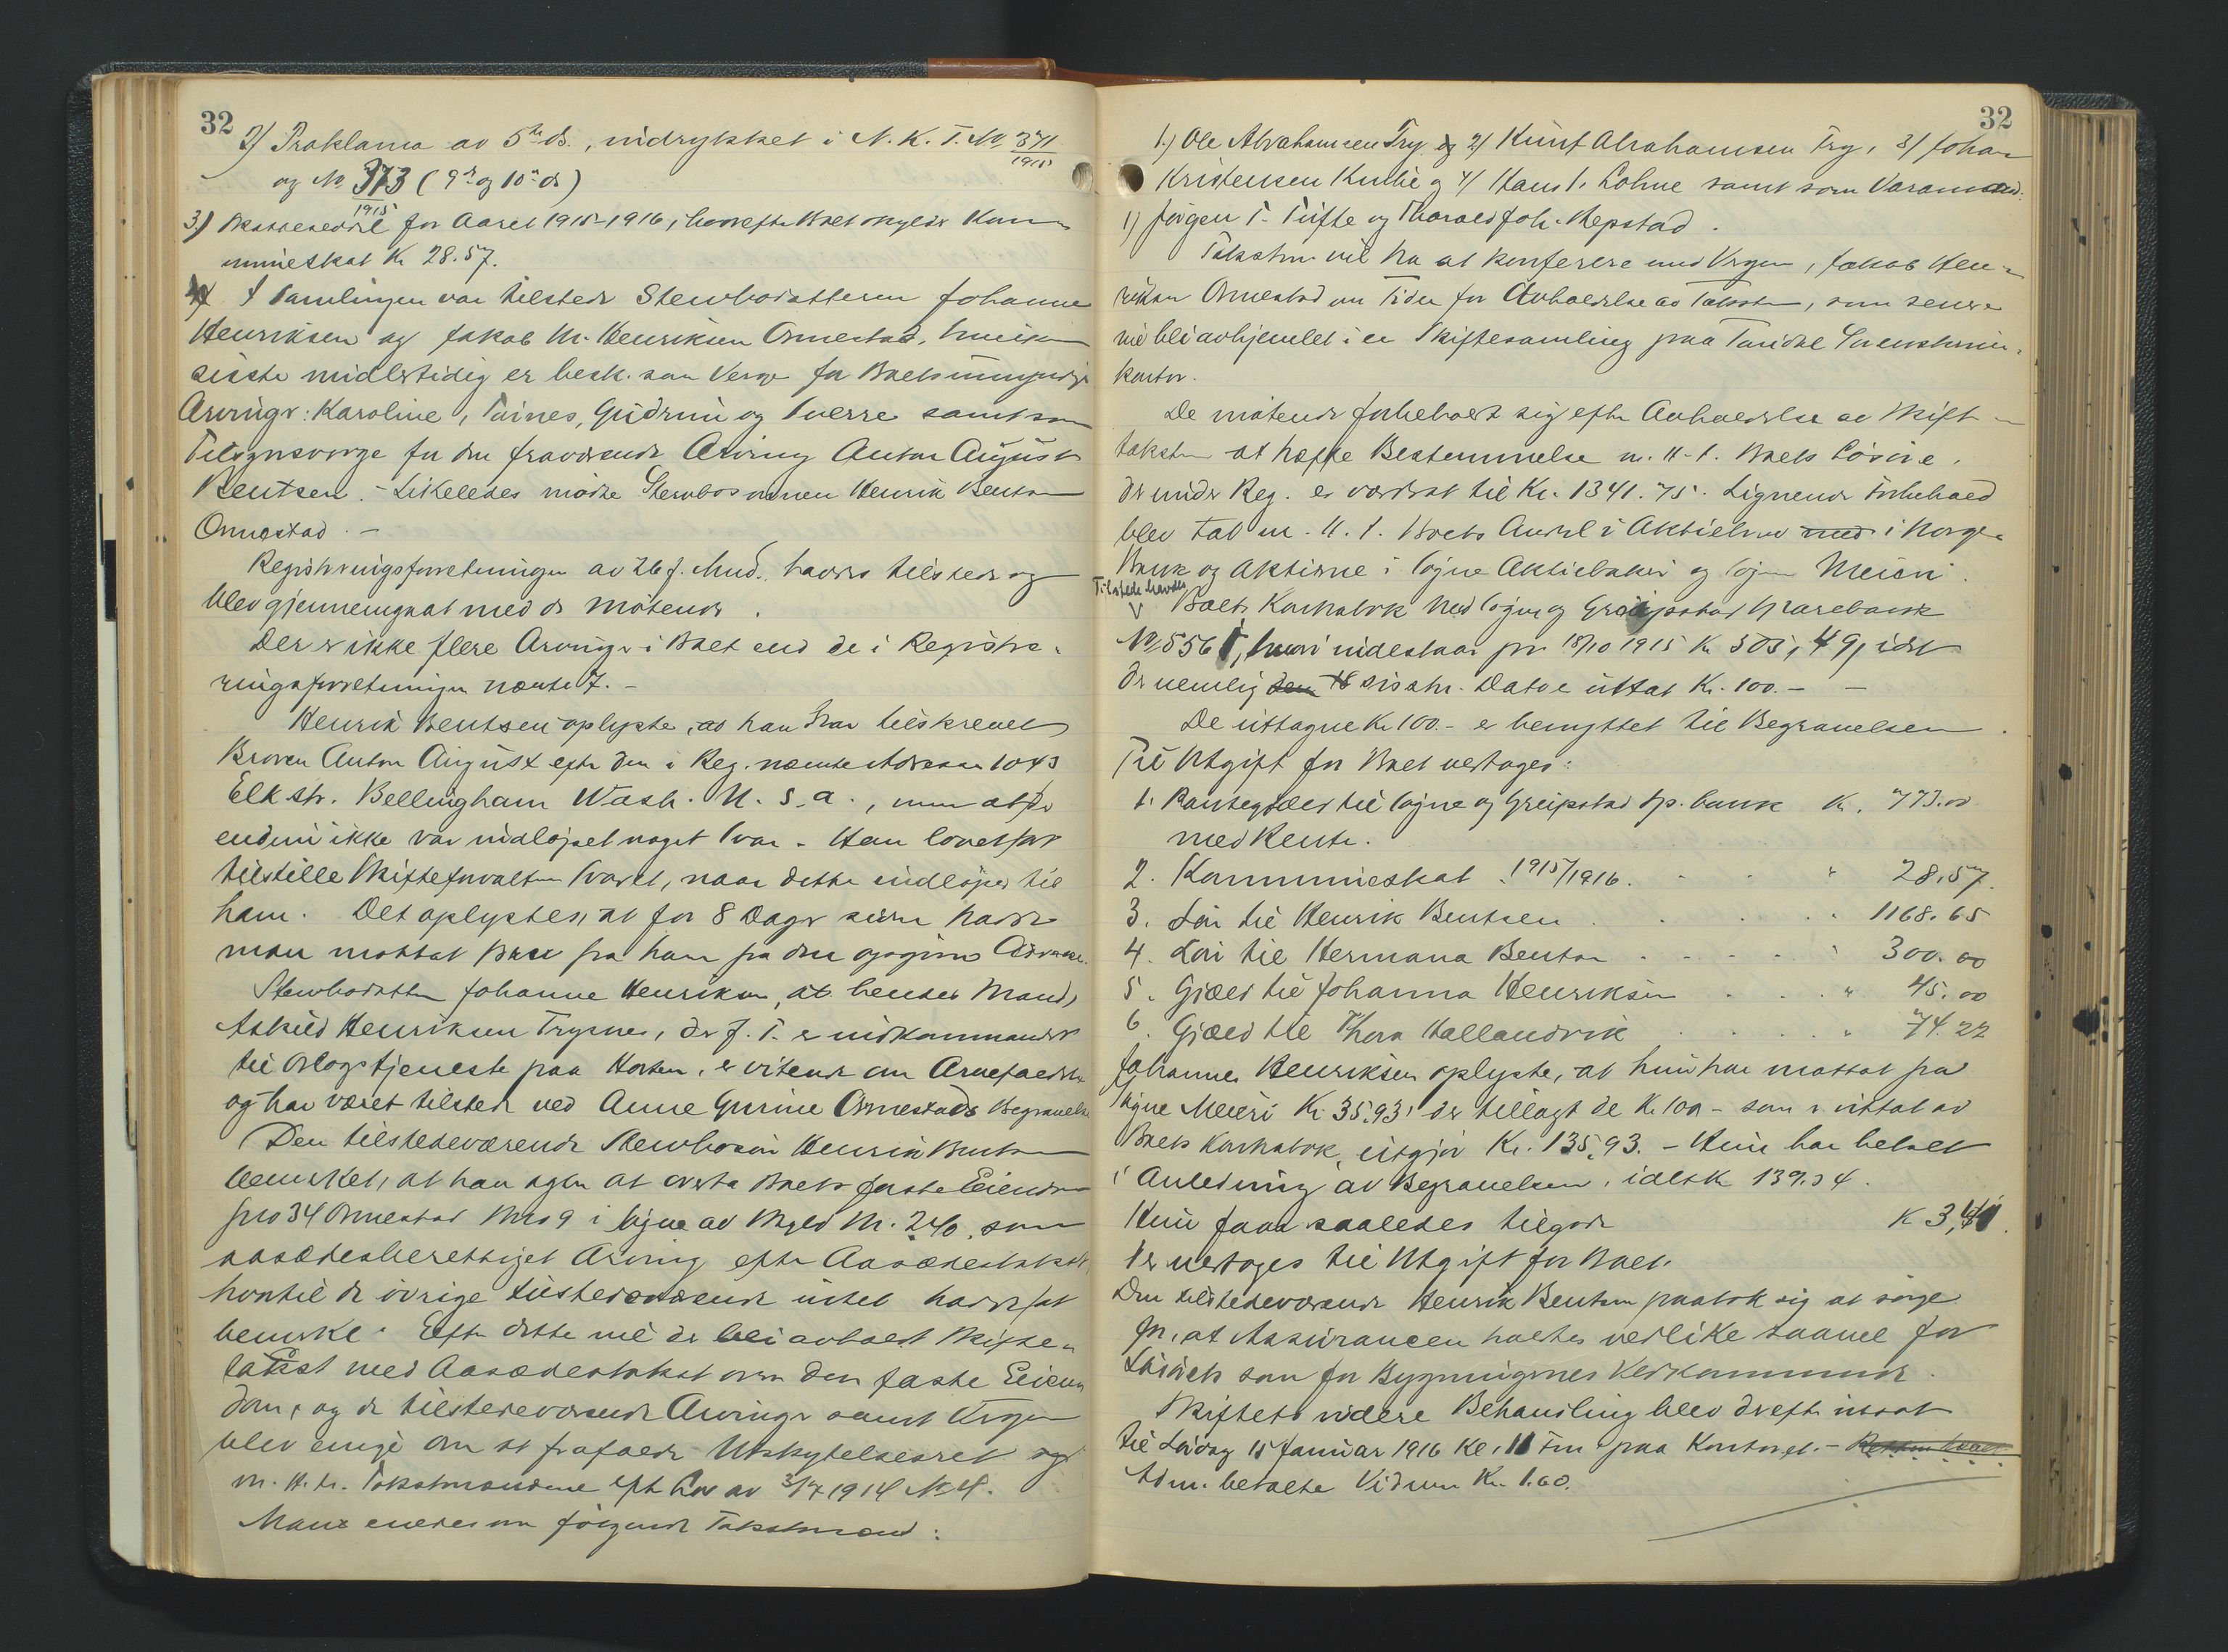 32
2) Proklama av 5te ds., indrykket i N. K. T. No 371/1915
og No 373/1915 (9de og 10de ds)
3.) Skatteseddel for Aaret 1915-1916, hvorefter Boet skylder Kom-
muneskat Kr 28.57.
I Samlingen var tilstede Stervbodatteren Johanne
Henriksen og Jakob M. Henriksen Ormestad, hvilken
sidste midlertidig er besk. som Verge for Boets umyndige
Arvinger: Karoline, Tomines, Gudrun og Sverre samt som
Tilsynsverge for den fraværende Arving Anton August
Bentsen. - Likeledes mødte Stervbosønnen Henrik Bentsen
Ormestad. -
Registreringsforretningen av 26 f. Mnd. havdes tilstede og
blev gjennemgaat med de møtende.
Der er ikke flere Arvinger i Boet end de i Registre-
ringsforretningen nævnte 7. -
Henrik Bentsen oplyste, at han har tilskrevet
Broren Anton August efter den i Reg. nævnte Adresse 1043
Elk str. Bellingham Wash. U. S. A., men at der
endnu ikke var indløpet noget Svar. Han lovet at
tilstille Skifteforvalteren Svaret, naar dette indløper til
ham. Det oplystes, at for 8 Dager siden hadde
man mottat Brev fra ham fra den opgivne Adresse.
Stervbodatteren Johanne Henriksen, at hendes Mand,
Askild Henriksen Trysnes, der f. T. er indkommandert
til Orlogstjeneste paa Horten, er vitende om Arvefaldet
og har været tilstede ved Anne Gurine Ormestads Begravelse
Den tilstedeværende Stervbosøn Henrik Bentsen
bemerket, at han agter at overta Boets faste Eiendom
Gno 34 Ormestad Bno 9 i Søgne av Skyld M. 2.40, som
aasædesberettiget Arving efter Aasædestakst,
hvortil de øvrige tilstedeværende intet hadde at
bemerke. Efter dette vil der bli avholdt Skifte-
takst med Aasædestakst over den faste Eien-
dom, og de tilstedeværende Arvinger samt Vergen
blev enige om at frafalde Utskytelsesret og
m. H. t. Takstmændene efter Lov av 3/7 1914 No 4.
Man enedes om følgende Takstmænd:
32
1.) Ole Abrahamsen Try og 2) Knut Abrahamsen Try, 3) Johan
Kristensen Kulie og 4) Hans T. Lohne samt som Varamænd:
1) Jørgen T. Tufte og Tharald Joh. Repstad.
Taksten vil ha at konferere med Vergen, Jakob Hen-
riksen Ormestad om Tiden for Avholdelse av Taksten, som senere
vil bli avhjemlet i en Skiftesamling paa Tangdal Sorenskriver-
kontor.
De møtende forbeholdt sig efter Avholdelse av Skifte-
taksten at træffe Bestemmelse m. H. t. Boets Løsøre,
der under Reg. er værdsat til Kr. 1341.75. Lignende Forbehold
blev tat m. H. t. Boets Andel i Aktielov med i Norges
Bank og Aktierne i Søgne Aktiebakeri og Søgne Meieri.
Tilstede havdes
Boets Kontrabok med Søgne og Greipstad Sparebank
No 5561, hvori indestaar pr. 18/10 1915 Kr 303,49, idet
der nemlig den 18 sidstn. Dato er uttat Kr. 100.- -
De uttagne Kr 100.- er benyttet til Begravelsen.
Til Utgift for Boet vedtages:
1. Pantegjæld til Søgne og Greipstad Sp. bank Kr. 773.00
med Rente.
2. Kommuneskat 1915/1916. " 28.57.
3. Lån til Henrik Bentsen " 1168.65
4. Lån til Hermana Bentsen " 300.00
5. Gjæld til Johanna Henriksen " 45.00
6. Gjæld til Thora Hallandvik " 74.22
Johanne Henriksen oplyste, at hun har mottat fra
Søgne Meieri Kr. 35.93, der tillagt de Kr 100 - som er uttat av
Boets Kontrabok, utgjør Kr. 135,93. - Hun har betalt
i Anledning av Begravelsen, ialt Kr 139.34.
Hun faar saaledes tilgode Kr 3,41.
der vedtages til Utgift for Boet.
Den tilstedeværende Henrik Bentsen paatok sig at sørge
for, at Assurancen holdes vedlike saavel for
Løsøret som for Bygningernes Vedkommende.
Skiftets videre Behandling blev derefter utsat
til Lørdag 15 Januar 1916 Kl. 11 Fm. paa Kontoret. - Retten hævet
Adm. betalte Vidnerne Kr. 1.60.